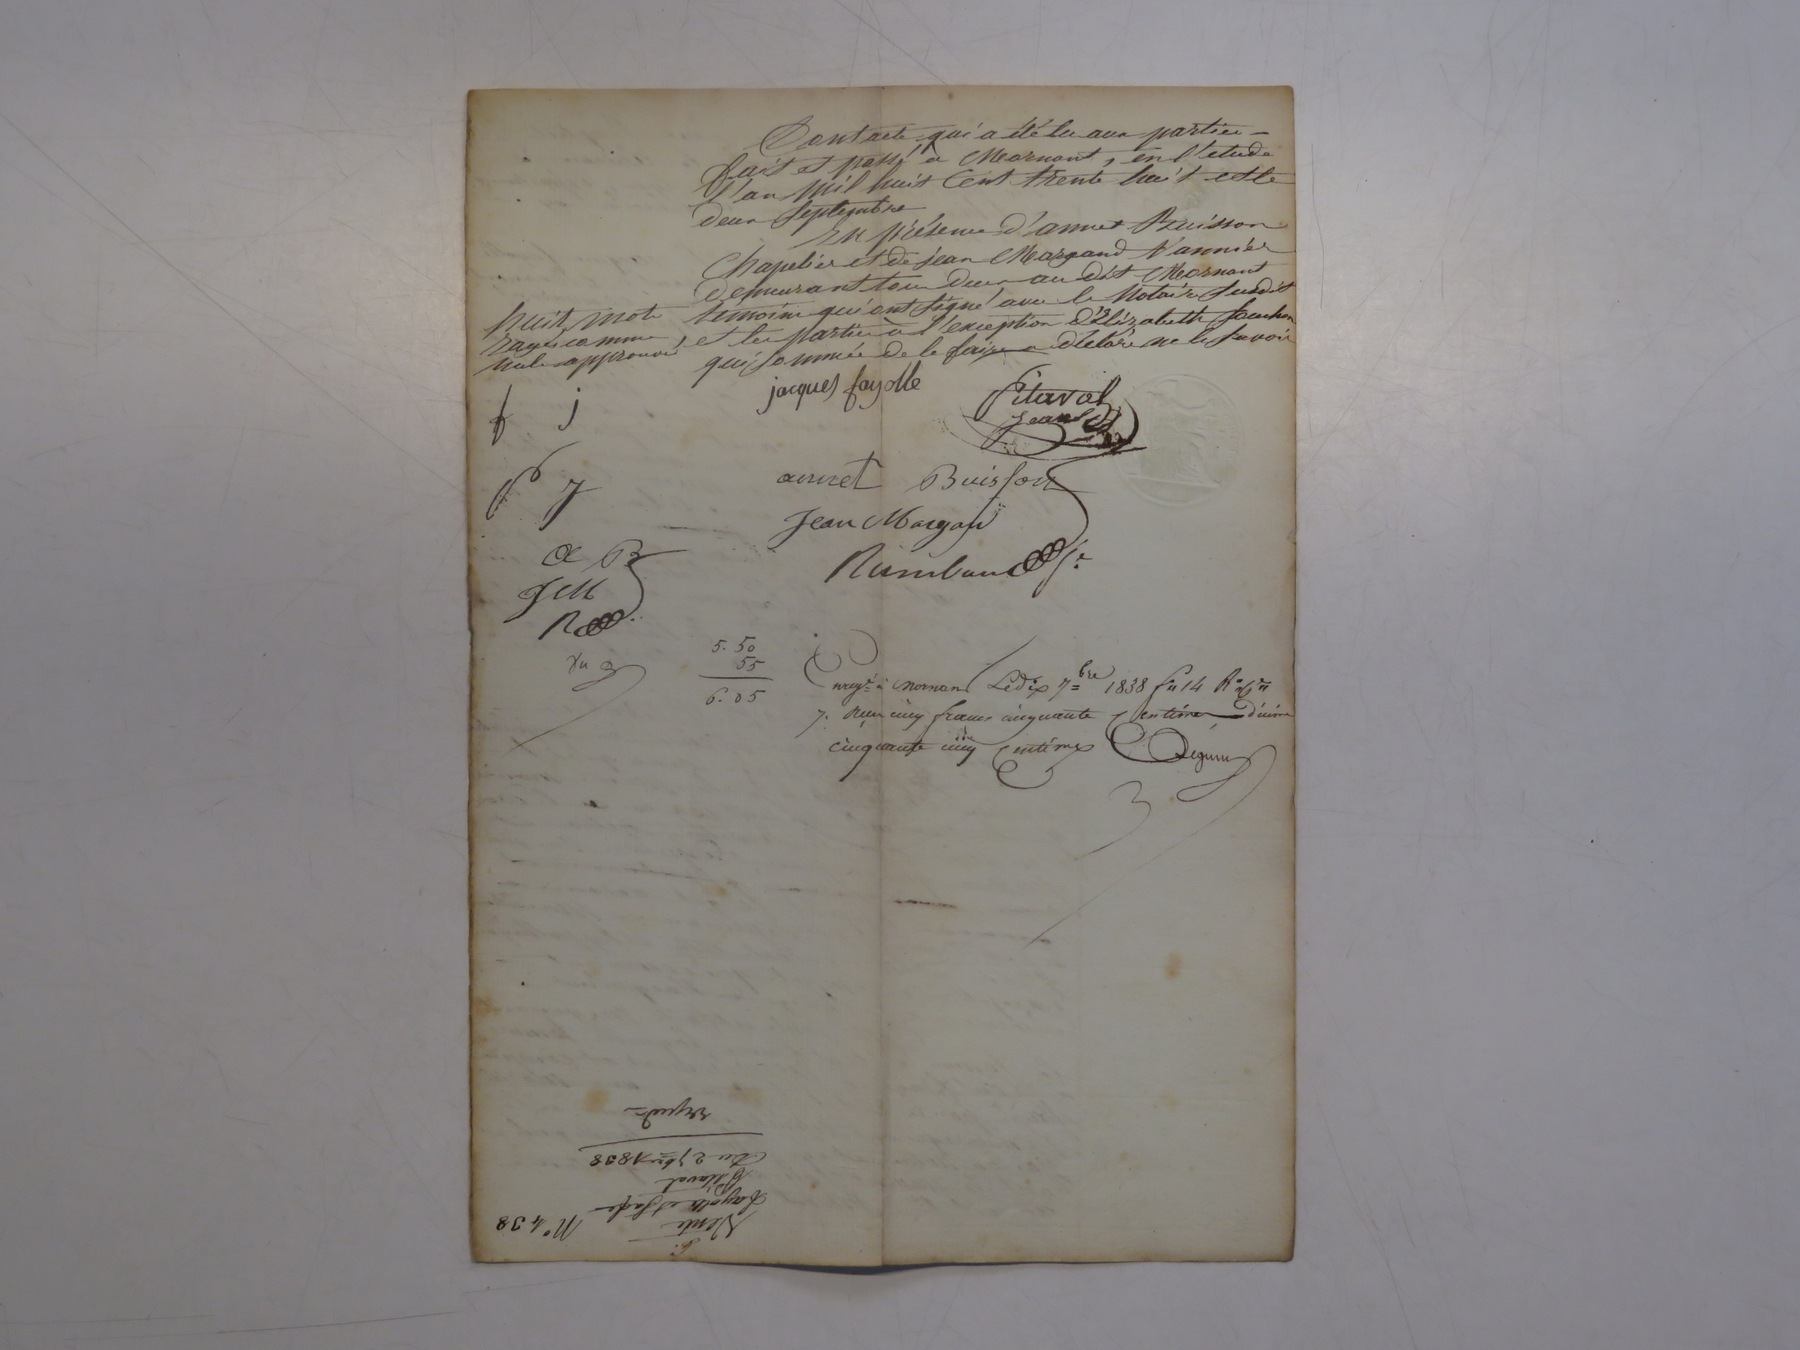 Dont acte qui a été lu aux parties -
fait et passé à Mornant, en l'étude
l'an mil huit cent trente huit et le
deux Septembre
En présence d'annet Buisson
Chapelier et de jean Margand Vannier
demeurant tous deux au dit Mornant
témoins qui ont signé avec le Notaire susdit
et les parties à l'exception d'Elizabeth
qui sommée de le faire a déclaré ne le savoir
huit mots
rayés comme
nuls approuvés
jacques fayolle
Pitaval
Jean
annet Buisson
Jean Margan
f j
P J
a B
J M
R
Vu
5. 50
55
6. 05
Enregt. à Mornant Le dix 7bre 1838 fo 14 Ro
7. Reçu cinq francs cinquante Centimes décime
cinquante cinq centimes
No 438
Vente
Fayolle et
Pitaval
Du 2 7bre 1838